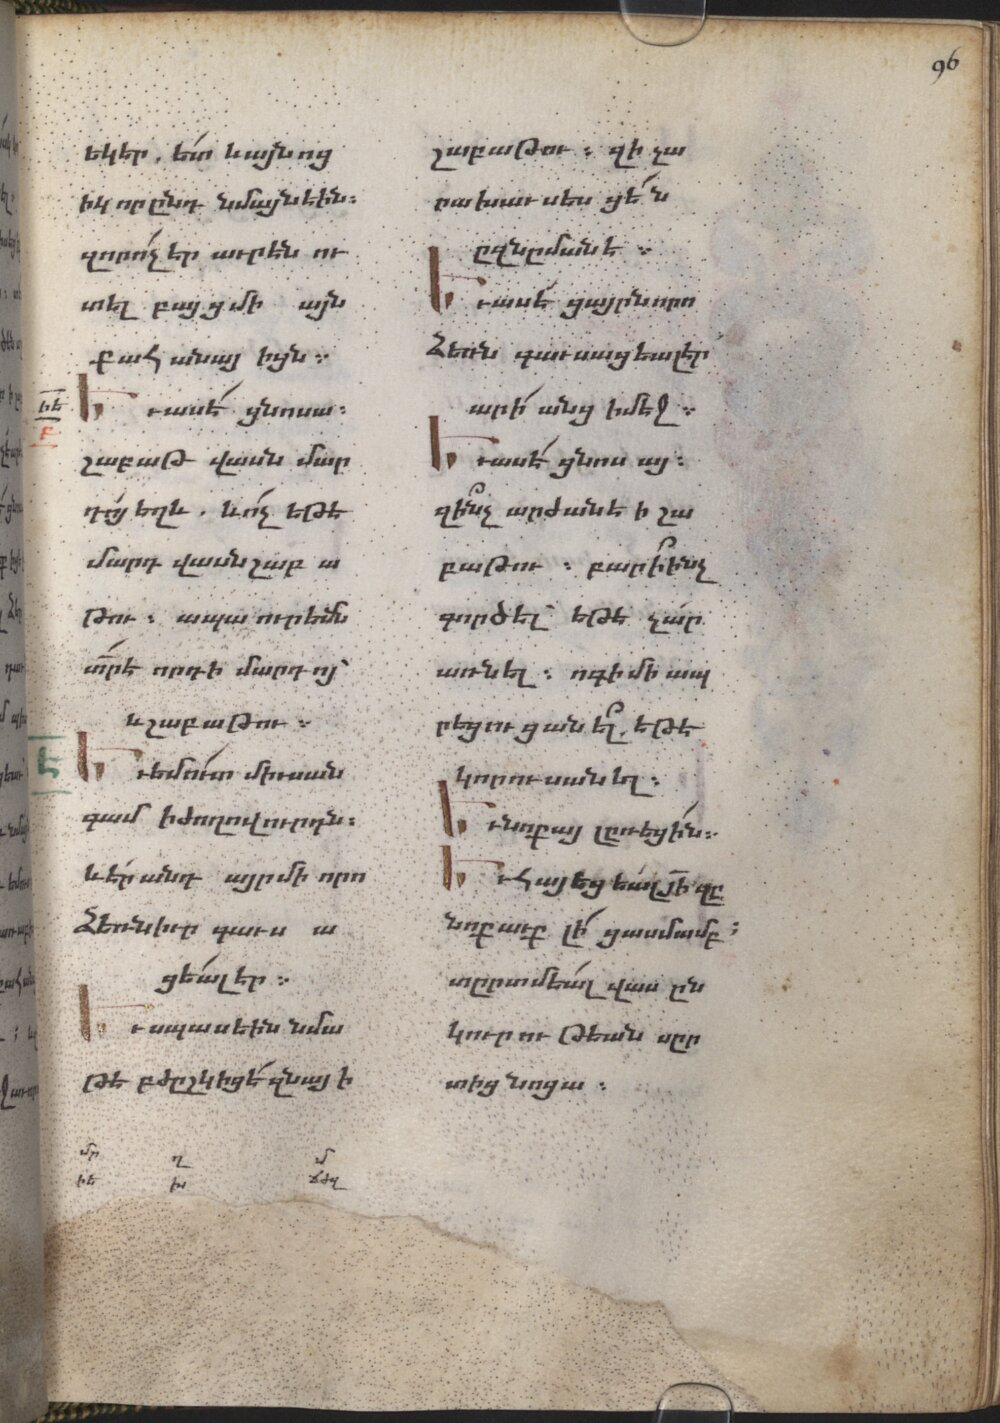 96
եկեր, ետ և այնոց
իկ որ ընդ նմայն էին։
զորոչ էր աւրէն ու
տել բայց մի այն
քահանայ իցն։
Եւ ասէ ցնոսա։
շաբաթ վասն մար
դոյ եղև. և ոչ եթե
մարդ վասն շաբա
թու։ ապա ուրեմն
տր է որդի մարդոյ՝
և շաբաթու։
Եւ եմուտ միւսան
գամ ի ժողովուրդն։
և էր անդ այր մի որո
ձեռն իւր գաւսա
ցեալ էր։
Եւ սպասէին նմա
թէ բժըշկիցէ զնայ ի
իե
բ
մր
իե
ղ
իս
մ
ճժզ
շաբաթու։ զի չա
րախաւսեսցեն
ըզնըմանէ։
Եւ ասէ ցայրն որո
ձեռն գաւսացեալ էր
արի անց ի մէջ։
Եւ ասէ ցնոսայ։
զինչ արժան է ի շա
բաթու։ բարի ինչ
գործել՝ եթե չար
առնել։ ոգի մի ապ
րեցուցանել, եթե
կորուսանել։
Եւ նոքայ լըռեցին։
Եւ հայեցեալ յի զը
նոքաւք լի ցասմամբ։
տըրտմեալ վասըն
կուրութեան սըր
տից նոցա։